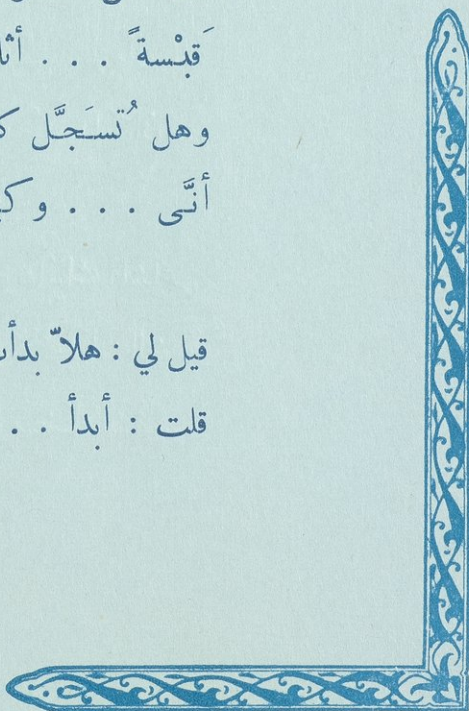 قَبْسةً . . . أثا
وهل تُسَجَّل ك
أنَّى . . . و كي
قيل لي : هلاّ بدأت
قلت : أبدأ . .